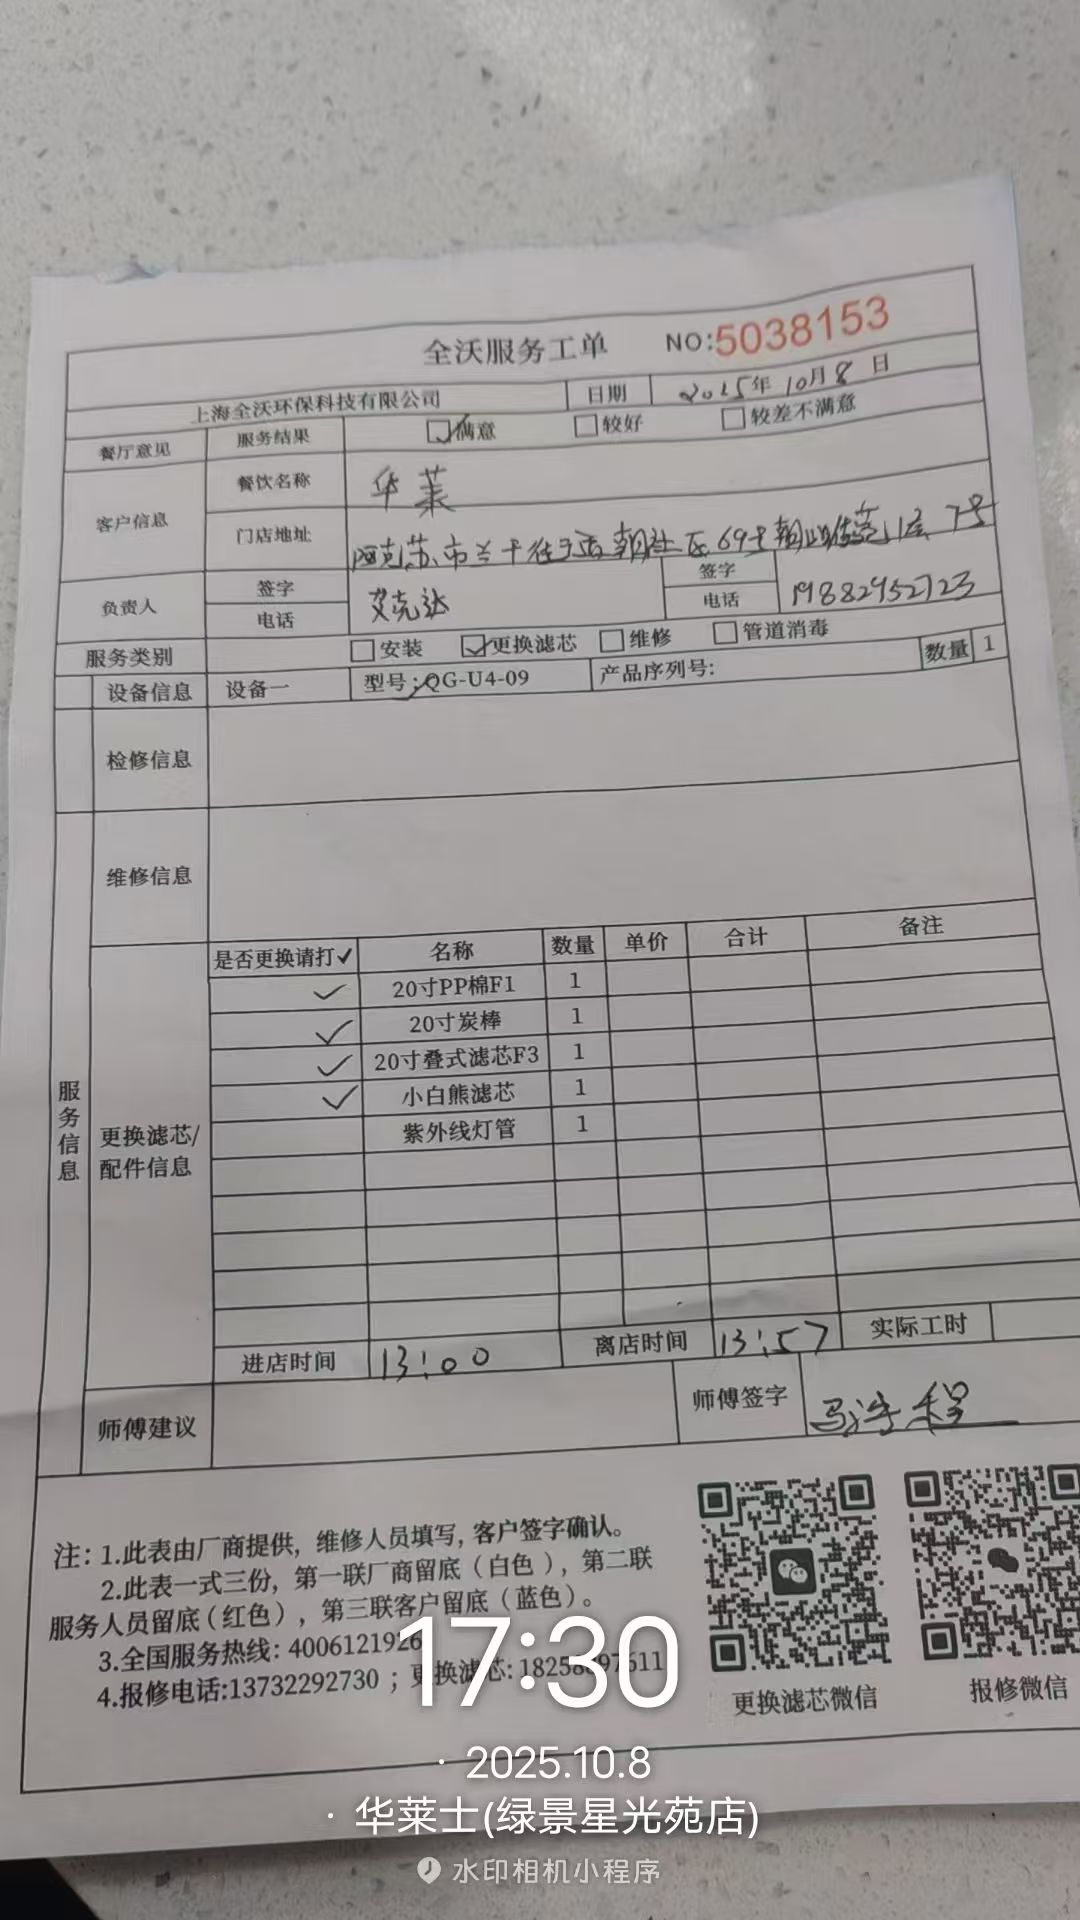 全沃服务工单 NO:5038153
上海全沃环保科技有限公司 日期 2025年10月8日
餐厅意见 服务结果 满意 较好 较差不满意
客户信息 餐饮名称 华莱
门店地址 阿克苏市兰干街 社区69号 1层 7号
负责人 签字 艾克达 签字
电话 电话 19882952723
服务类别 安装 更换滤芯 维修 管道消毒
设备信息 设备一 型号:QG-U4-09 产品序列号: 数量 1
检修信息
维修信息
服务信息
更换滤芯/
配件信息
是否更换请打✓ 名称 数量 单价 合计 备注
✓ 20寸PP棉F1 1
✓ 20寸炭棒 1
✓ 20寸叠式滤芯F3 1
✓ 小白熊滤芯 1
紫外线灯管 1
进店时间 13:00 离店时间 13:57 实际工时
师傅建议 师傅签字
注: 1.此表由厂商提供, 维修人员填写, 客户签字确认。
2.此表一式三份, 第一联厂商留底 (白色), 第二联
服务人员留底 (红色), 第三联客户留底 (蓝色)。
3.全国服务热线: 4006121926
4.报修电话:13732292730 ; 更换滤芯:
更换滤芯微信 报修微信
17:30
· 2025.10.8
· 华莱士(绿景星光苑店)
水印相机小程序